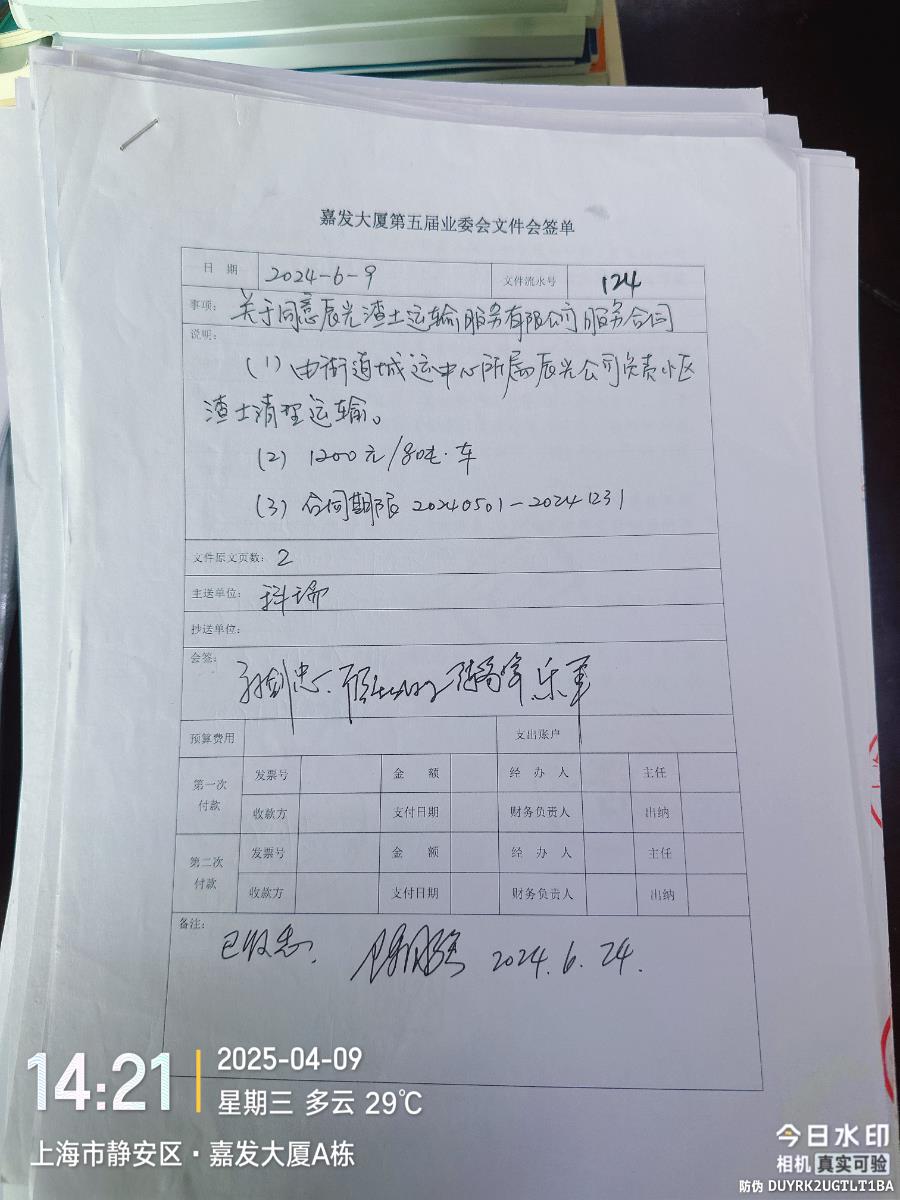 嘉发大厦第五届业委会文件会签单
日 期 2024-6-9 文件流水号 124
事项: 关于同意辰光渣土运输服务有限公司服务合同
说明:
(1) 由街道城运中心所属辰光公司负责小区
渣土清理运输。
(2) 1200元/80吨·车
(3) 合同期限 20240501-20241231
文件原文页数: 2
主送单位: 科瑞
抄送单位:
会签: 乐军
预算费用 支出账户
第一次付款 发票号 金 额 经 办 人 主任
收款方 支付日期 财务负责人 出纳
第二次付款 发票号 金 额 经 办 人 主任
收款方 支付日期 财务负责人 出纳
备注:
已收悉. 2024.6.24.
14:21
2025-04-09
星期三 多云 29℃
上海市静安区·嘉发大厦A栋
今日水印
相机 真实可验
防伪 DUYRK2UGTLT1BA